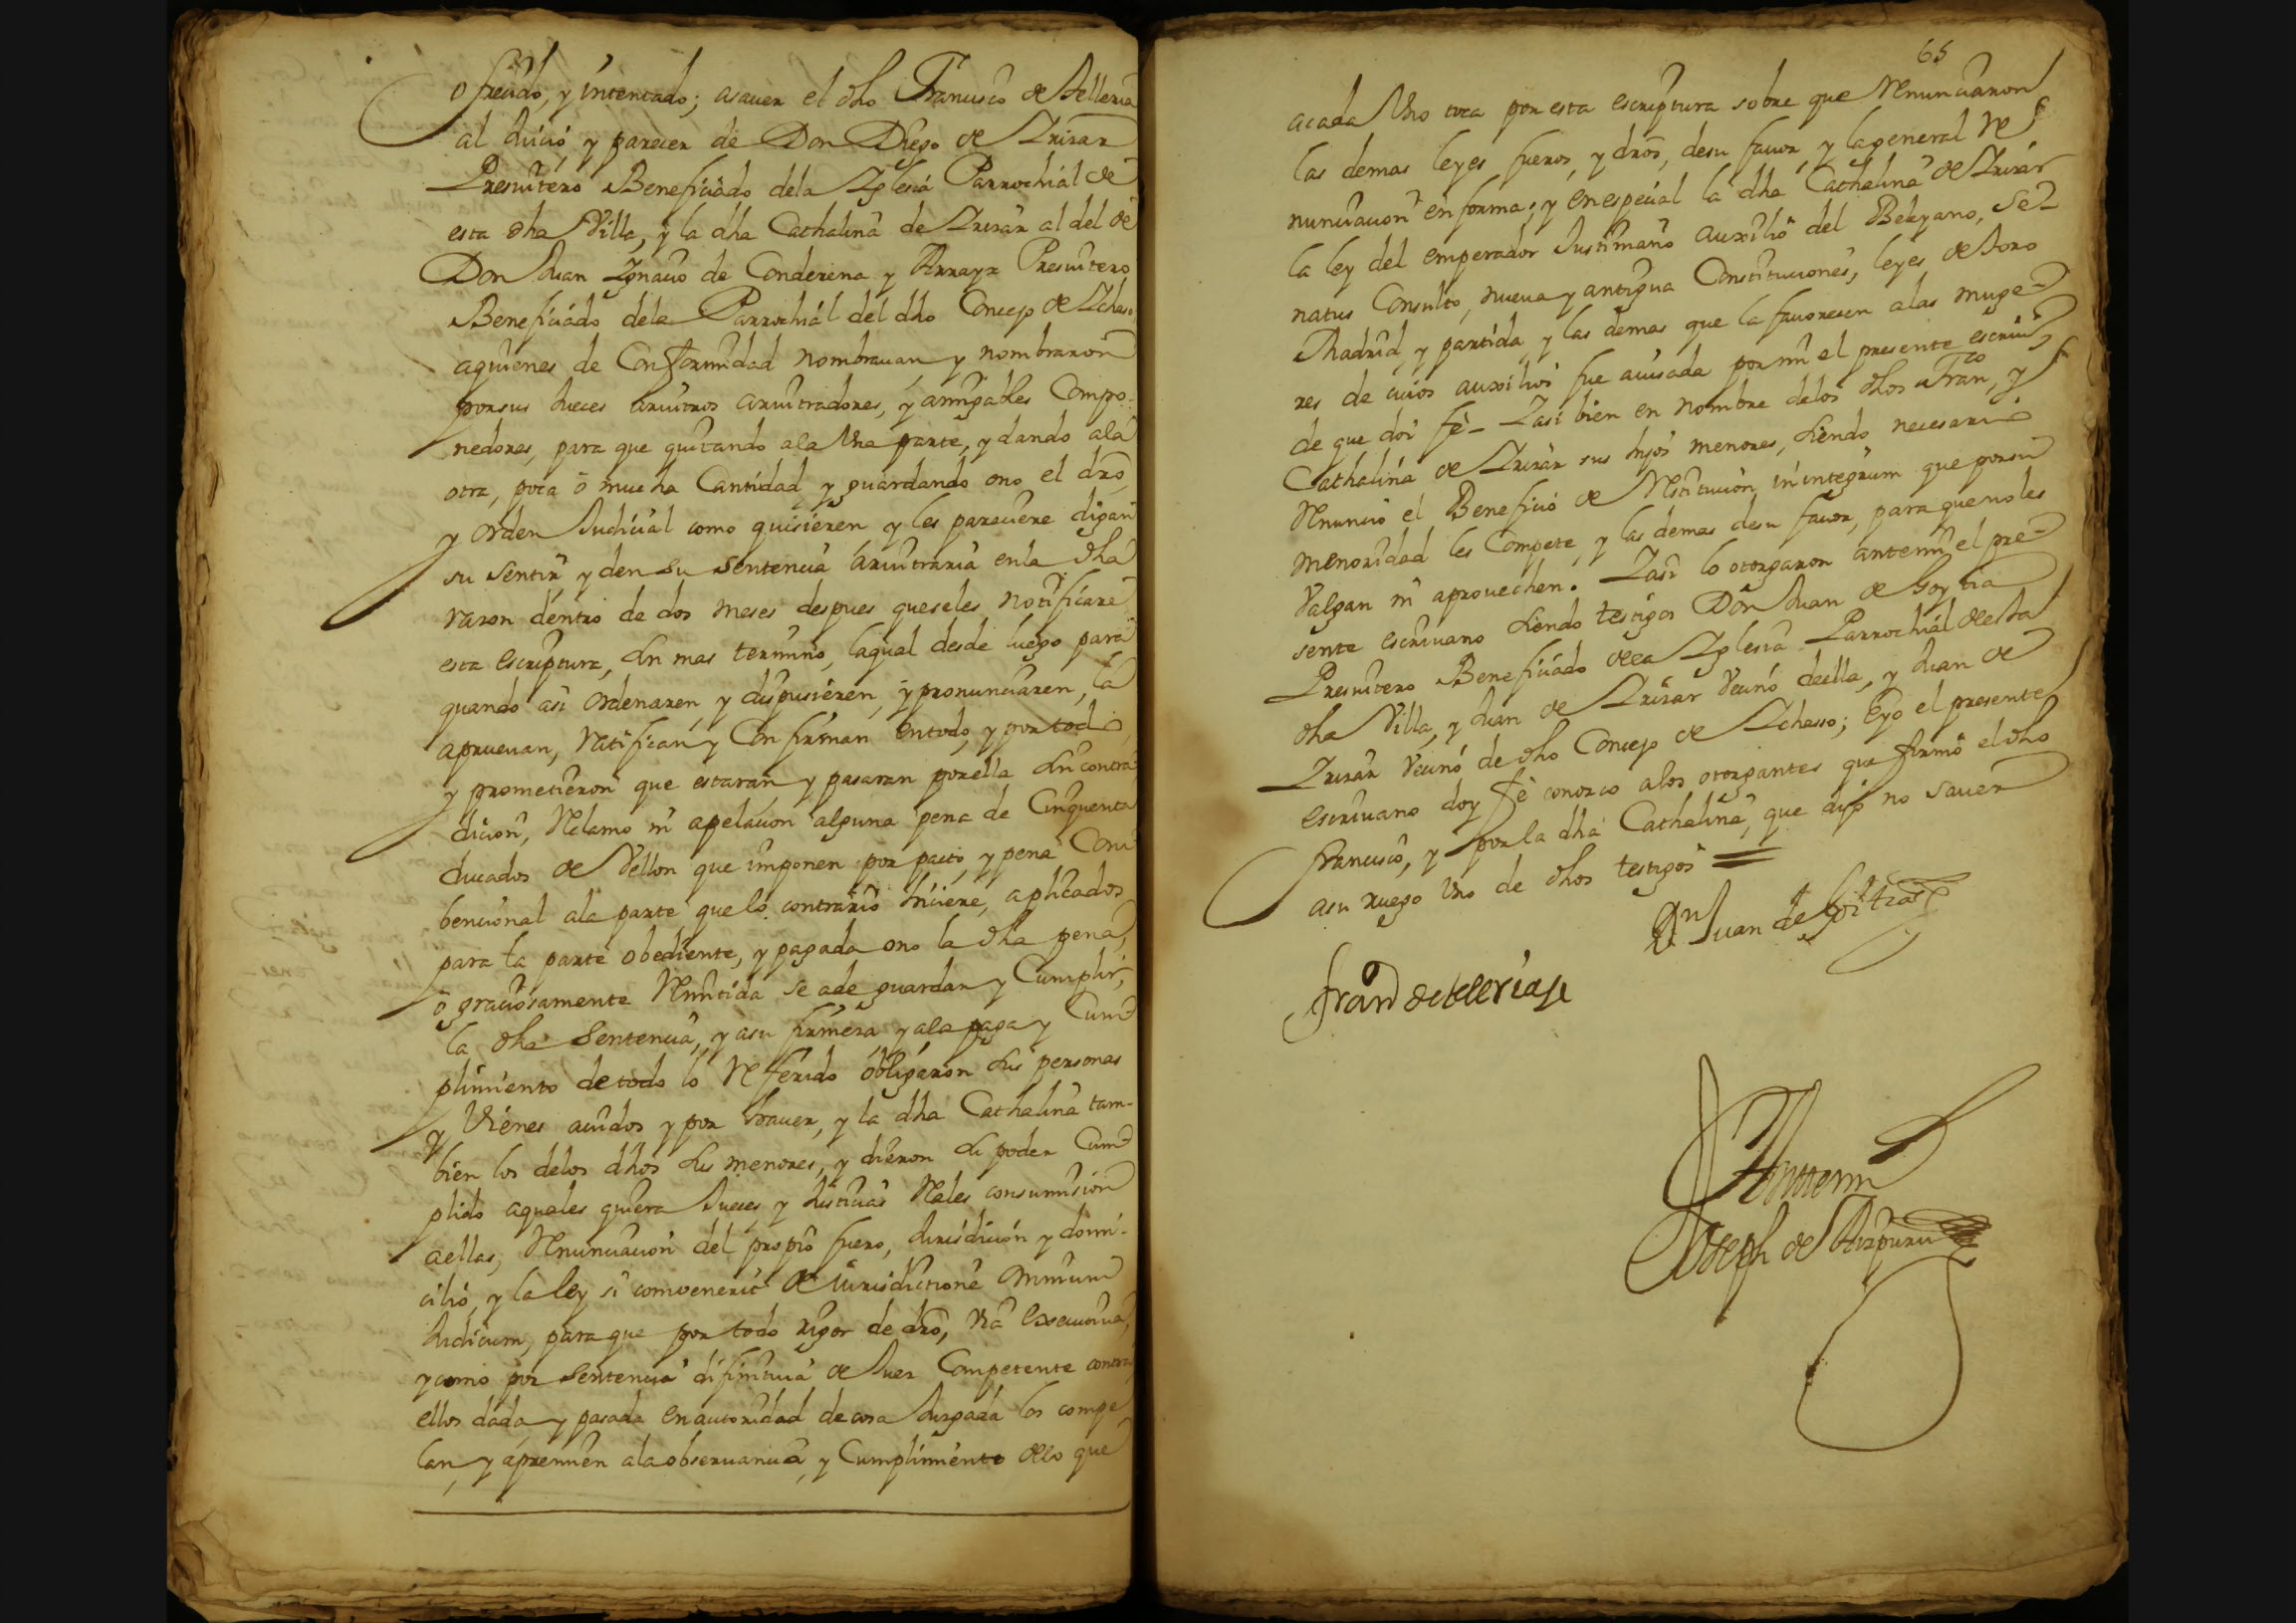 ofrecido, y intentado; asauer el dho Francisco de Telleria
al Juicio y parecer de Don Diego de Irizar
Presuitero Beneficiado dela Iglesia Parrochial de
esta dha Villa, y la dha Cathalina de Irizar al del de
Don Juan Ignacio de Conderena y Arraya Presuitero
Beneficiado dela Parrochial del dho Concejo de Ichaso
aquienes de Conformidad nombrauan y nombraron
por sus Jueces aruitros aruitradores, y amigables Compo-
nedores, para que quitando ala Vna parte, y dando ala
otra, poca o mucha Cantidad y guardando ono el dro,
y orden Judicial como quisieren y les pareciere digan
su sentir y den su sentencia aruitraria enla dha
razon dentro de dos meses despues queseles notificare
esta escriptura, sin mas termino, laqual desde luego para
quando asi ordenaren y dispusieren, y pronunciaren, la
aprueuan, Ratifican y Confirman entodo, y por todo
y prometieron que estaran y pasaran porella sin contra
dicion, Reclamo ni apelacion alguna pena de Cinquenta
ducados de Vellon que imponen por pacto, y pena Com
bencional ala parte que lo contrario hiciere, aplicados
para la parte obediente, y pagada ono la dha pena,
o graciosamente Remitida se ade guardar y Cumplir,
la dha Sentencia, y asu firmeza y ala paga y Cum
plimiento detodo lo Referido obligaron sus personas
y Vienes auidos y por hauer, y la dha Cathalina tam-
bien los delos dhos sus menores, y dieron su poder Cum
plido aquales quiera Jueces y Justicias Reales consumision
aellas, Renunciacion del propio fuero, Jurisdicion y domi-
cilio, y la ley si convenerit de iurisdictione omnium
Judicum, para que por todo rigor de dro, via executiua,
ycomo por sentencia difinitiua de Juez Competente contra
ellos dada y pasada enautoridad decosa Juzgada los compe
lan y apremien ala obseruancia, y Cumplimiento delo que
65
acada Vno toca por esta escriptura sobre que Renunciaron
las demas leyes fueros, y dros, desu fauor, y lageneral Re
nunciacion en forma; y en especial la dha Cathalina de Irizar
la ley del emperador Justiniano auxilio del Beleyano, Se-
natus Consulto, nueua y antigua Constituciones, leyes de Toro
Madrid y partida y las demas que la fauorecen alas muge-
res de cuios auxilios fue auisada por mi el presente escriu
de que doi fe- Iasi bien en nombre delos dhos Franco, y
Cathalina de Irizar sus hijos menores, siendo necesario
Renuncio el Beneficio de Restitucion in integrum que porsu
menoridad les Compete, y las demas desu fauor, para que no les
Valgan ni aprouechen. Iasi lo otorgaron antemi el pre-
sente escriuano siendo testigos Don Juan de Goytia
Presuitero Beneficiado dela Iglesia Parrochial desta
dha Villa, y Juan de Irizar Vecino deella, y Juan de
Irizar Vecino de dho Concejo de Ichasso; Eyo el presente
escriuano doy fe conozco alos otorgantes que firmo el dho
francisco, y por la dha Cathalina, que dijo no sauer
asu ruego Vno de dhos testigos
Dn Juan de Goitia
franco de telleria
Antemi
Joseph de Aizpuru